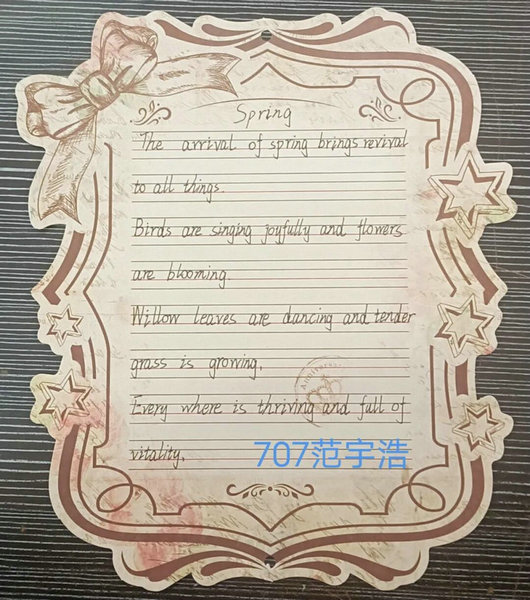 Spring
The arrival of spring brings revival
to all things.
Birds are singing joyfully and flowers
are blooming.
Willow leaves are dancing and tender
grass is growing.
Every where is thriving and full of
vitality.
707范宇浩